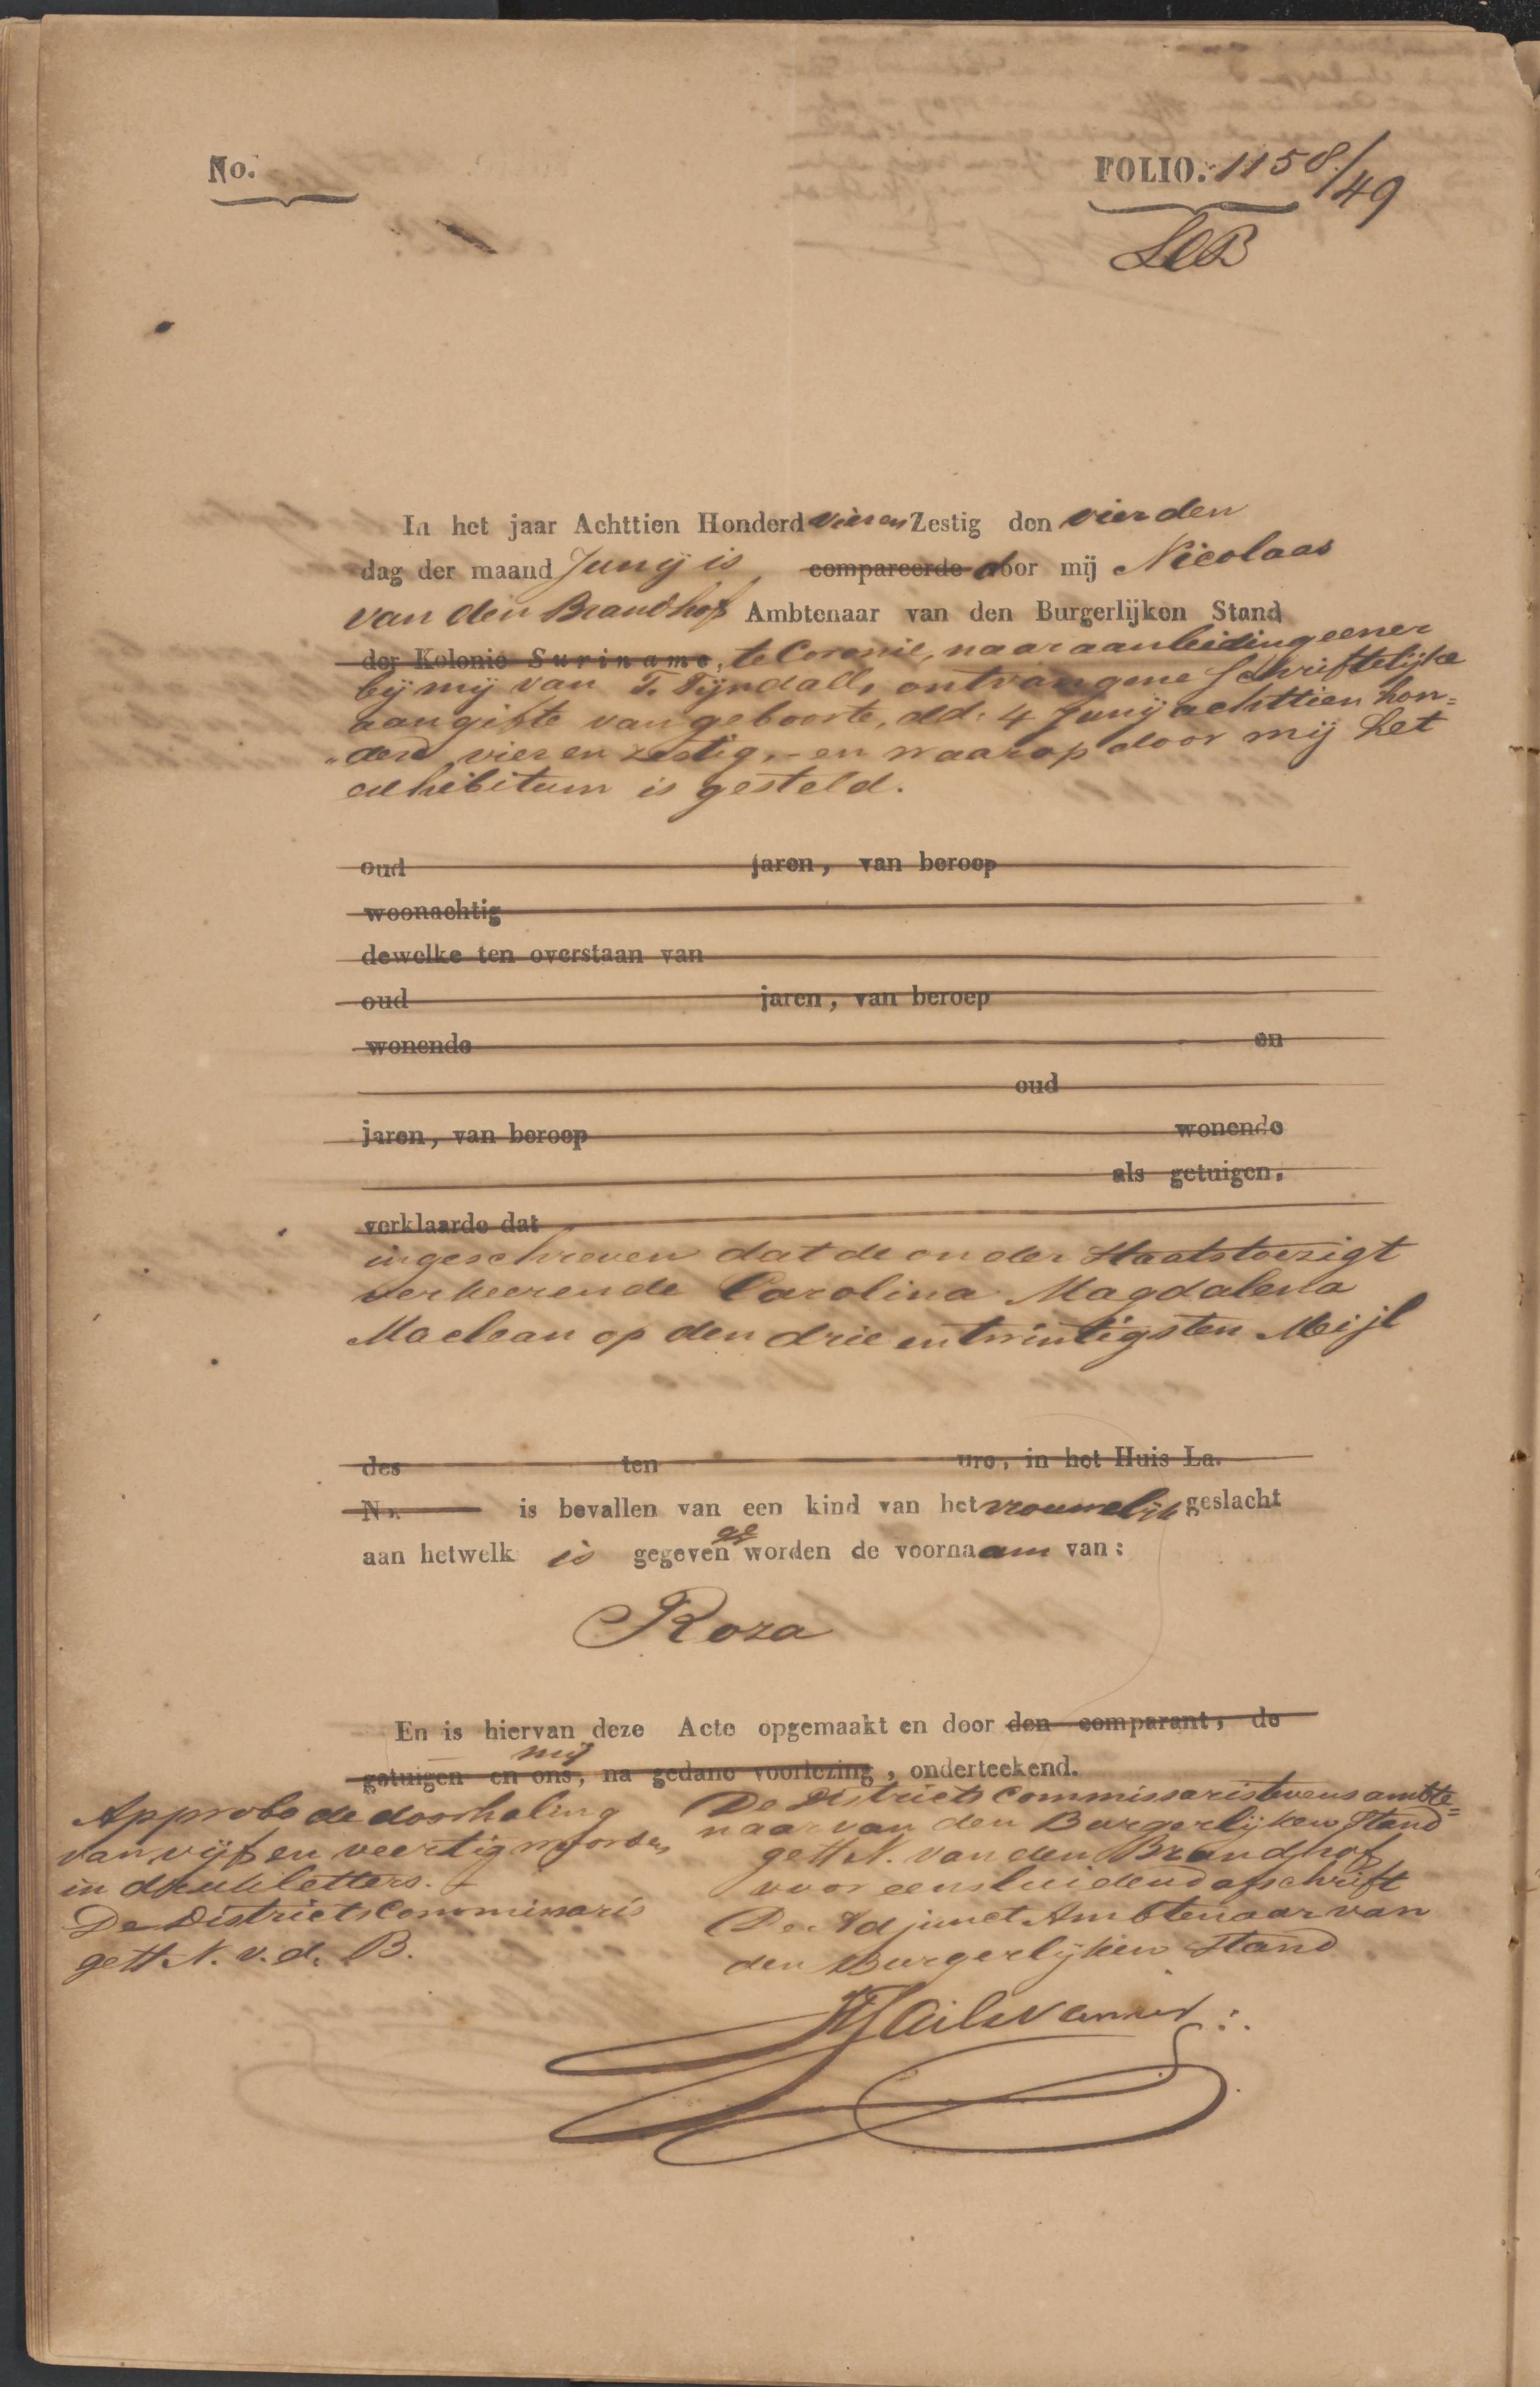 No.
FOLIO. 1158/49
In het jaar Achttien Honderd vier en Zestig den vierden
dag der maand Junij is, compareerde door mij Nicolaas
van den Brandhof Ambtenaar van den Burgerlijken Stand
der Kolonie Suriname, te Coronie, naar aanleiding eener
bij mij van T. Tyndall, ontvangene schriftelijke
aangifte van geboorte, dd: 4 Junij achttien hon=
"derd vier en zestig, - en waarop door mij het
exhibitum is gesteld.
oud jaren, van beroep
woonachtig
dewelke ten overstaan van
oud jaren, van beroep
wonende en
oud
jaren, van beroep wonende
als getuigen,
verklaarde dat
ingeschreven dat de onder Staatstoezigt
verkeerende Carolina Magdalena
Maclean op den drie en twintigsten Mei jl
des ten ure, in het Huis La.
No. is bevallen van een kind van het vrouwelijk geslacht
aan hetwelk is gegeven ge worden de voornaam van:
Roza
En is hiervan deze Acte opgemaakt en door den comparant, de
getuigen en ons, mij na gedane voorlezing, onderteekend.
Approbo de doorhaling
van vijf en veertig woorden
in drukletters. -
De Districts Commissaris
gett N. v. d. B.
De Districts Commissaris tevens ambte=
naar van den Burgerlijken Stand
gett N. van den Brandhof
voor eensluidend afschrift
De Adjunct Ambtenaar van
den Burgerlijken Stand